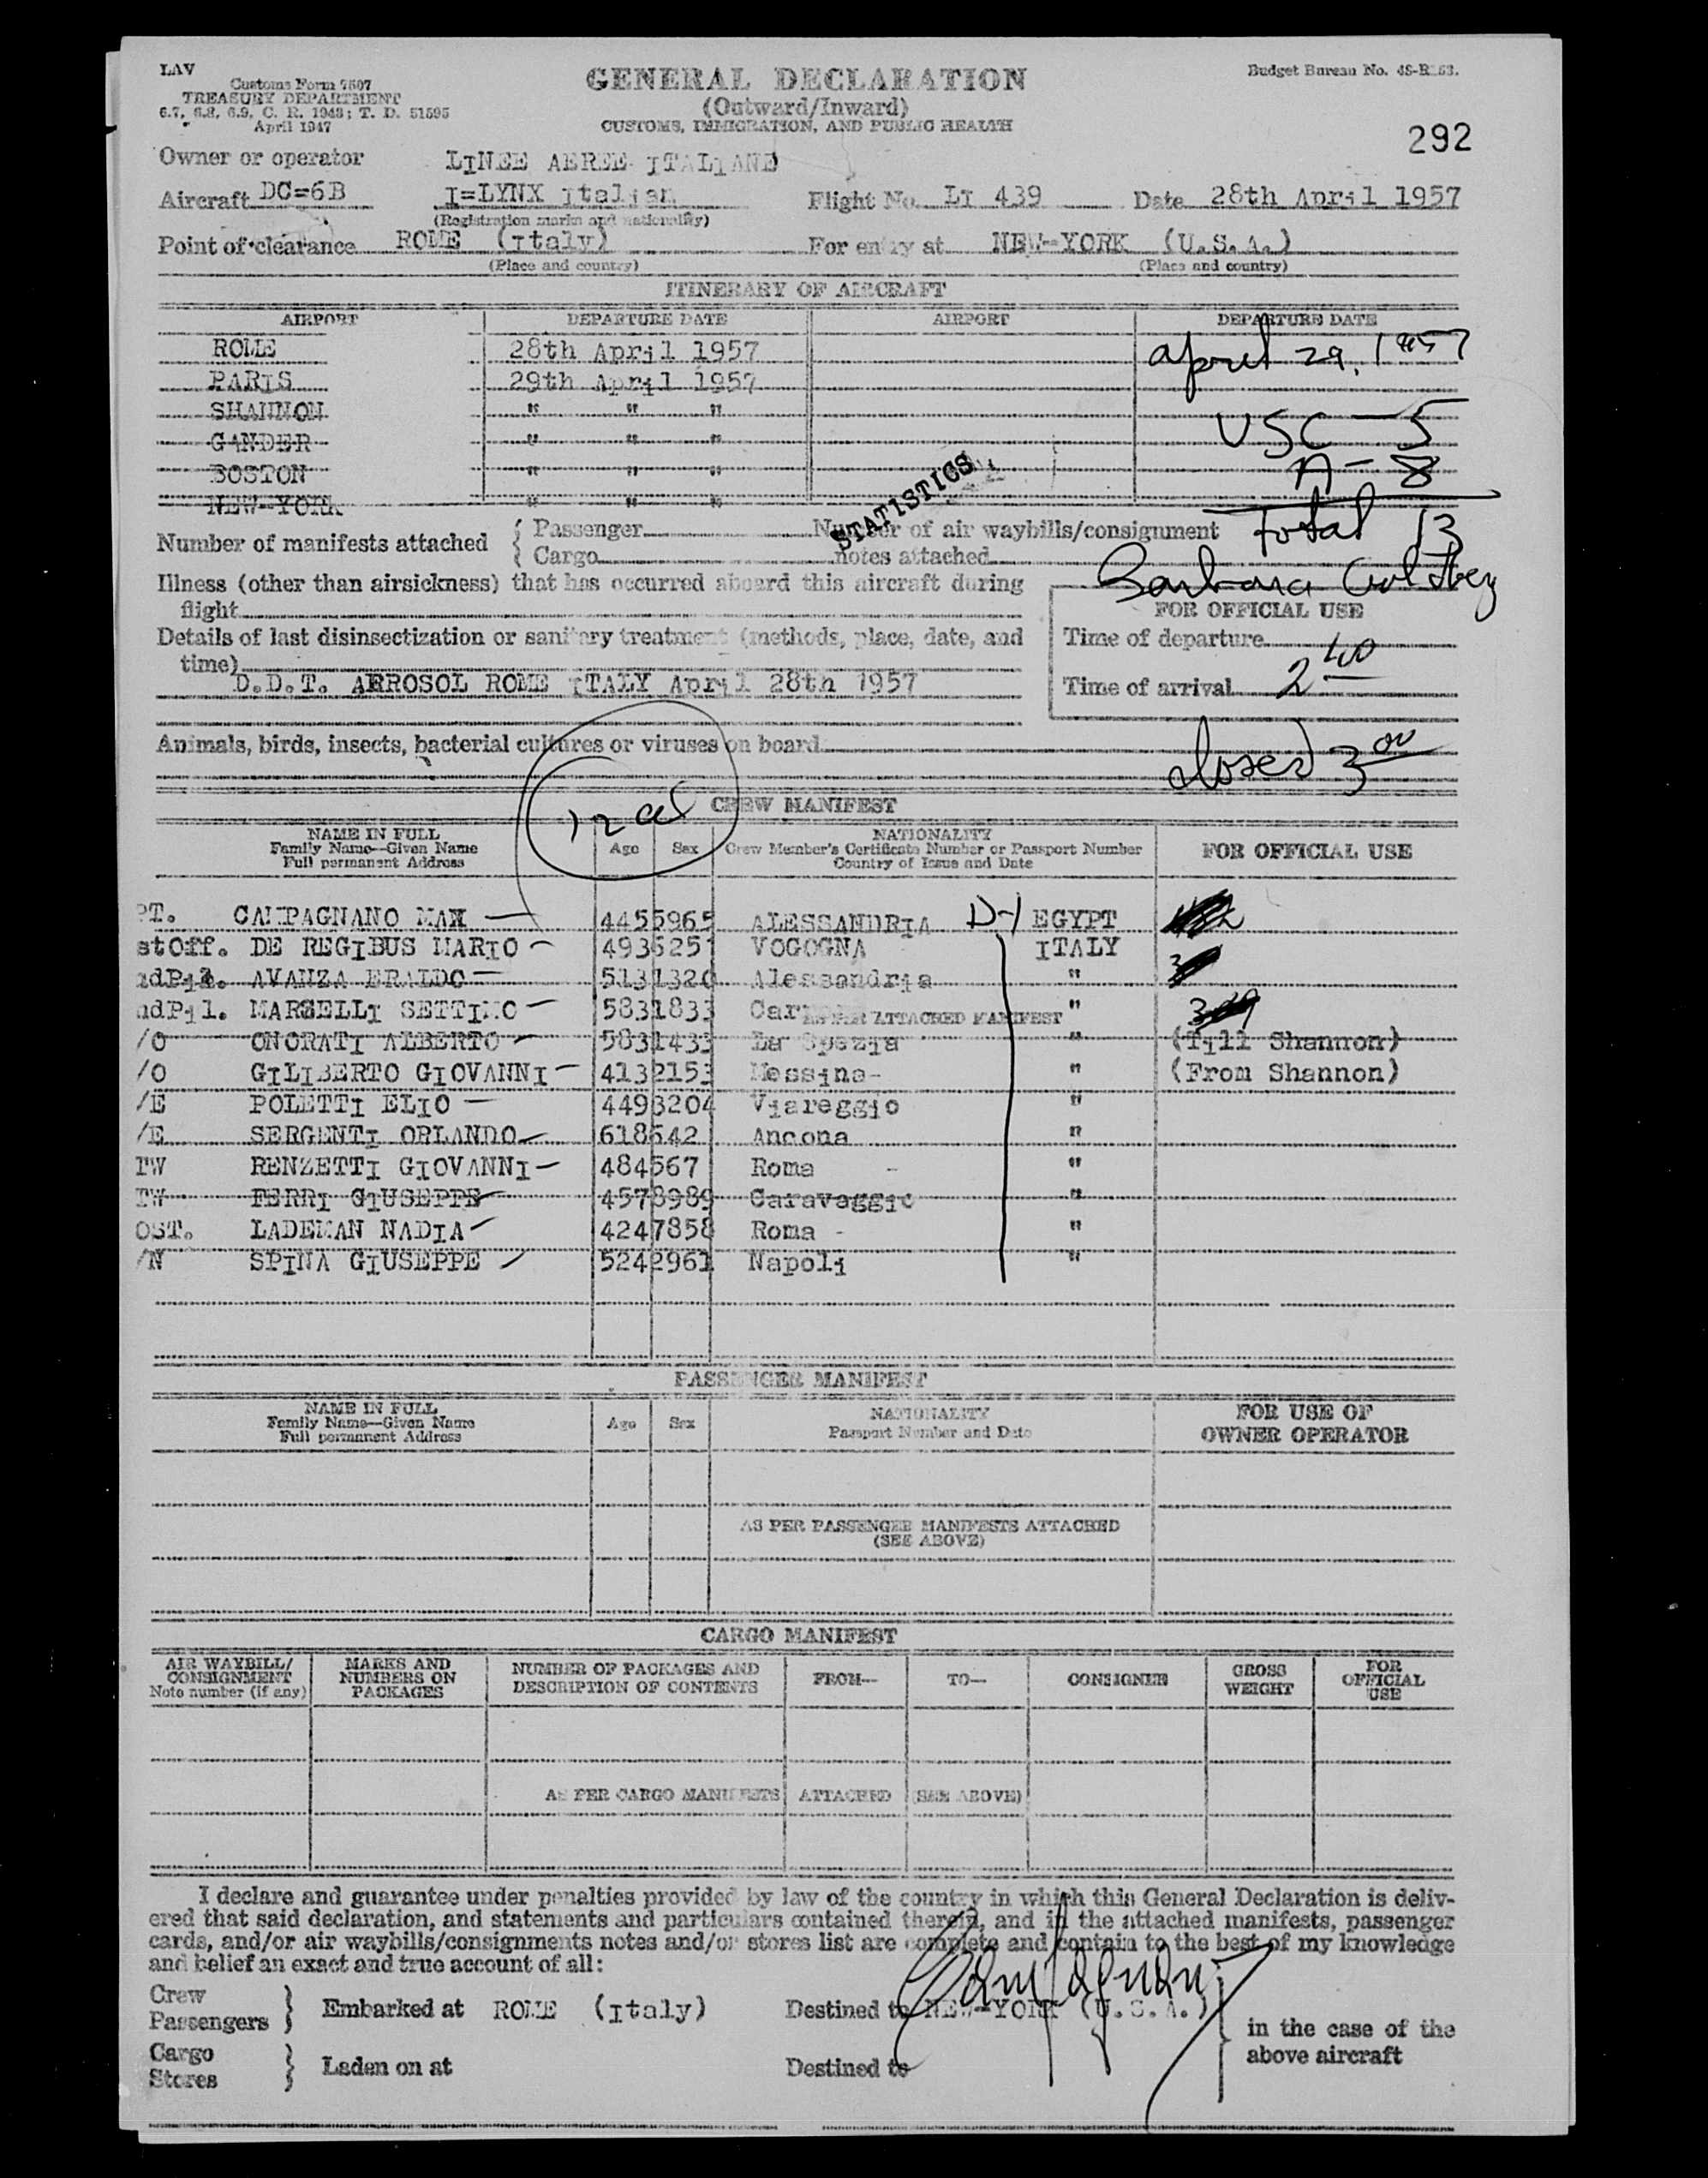 LAV
Customs Form 7507
TREASURY DEPARTMENT
6.7, 6.8, 6.9, C. R. 1943; T. D. 51595
April 1947
GENERAL DECLARATION
(Outward/Inward)
CUSTOMS, IMMIGRATION, AND PUBLIC HEALTH
Budget Bureau No.
292
Owner or operator LINEE AEREE ITALIANE
Aircraft DC=6B I=LYNX Italian Flight No. LI 439 Date 28th April 1957
(Registration marks and nationality)
Point of clearance ROME (Italy) For entry at NEW-YORK (U.S.A.)
(Place and country) (Place and country)
ITINERARY OF AIRCRAFT
AIRPORT DEPARTURE DATE AIRPORT DEPARTURE DATE
ROME 28th April 1957 April 29, 1957
PARIS 29th April 1957
SHANNON " " " USC - 5
GANDER " " "
BOSTON " " " A - 8
NEW-YORK " " "
STATISTICS
Total 13
Number of manifests attached { Passenger Number of air waybills/consignment
{ Cargo notes attached
Barbara
Illness (other than airsickness) that has occurred aboard this aircraft during
flight
FOR OFFICIAL USE
Details of last disinsectization or sanitary treatment (methods, place, date, and
time)
Time of departure
D.D.T. AEROSOL ROME ITALY April 28th 1957
Time of arrival 2 40
Animals, birds, insects, bacterial cultures or viruses on board
closed 3 00
12
CREW MANIFEST
NAME IN FULL
Family Name—Given Name
Full permanent Address
Age Sex
NATIONALITY
Crew Member's Certificate Number or Passport Number
Country of Issue and Date
FOR OFFICIAL USE
PT. CAMPAGNANO MAX 4455965 ALESSANDRIA D-1 EGYPT
stOff. DE REGIBUS MARIO 4936251 VOGOGNA ITALY
ndPil. AVANZA ERALDO 5131320 Alessandria "
ndPil. MARSELLI SETTIMO 5831833 "
ATTACHED MANIFEST
/O ONORATI ALBERTO 5831433 La Spezia " (Till Shannon)
/O GILIBERTO GIOVANNI 4132153 Messina- " (From Shannon)
/E POLETTI ELIO 4493204 Viareggio "
/E SERGENTI ORLANDO 618642 Ancona "
TW RENZETTI GIOVANNI 484567 Roma - "
TW FERRI GIUSEPPE 4578989 Caravaggio "
OST. LADEMAN NADIA 4247858 Roma - "
/N SPINA GIUSEPPE 5242961 Napoli "
PASSENGER MANIFEST
NAME IN FULL
Family Name—Given Name
Full permanent Address
Age Sex
NATIONALITY
Passport Number and Date
FOR USE OF
OWNER OPERATOR
AS PER PASSENGER MANIFESTS ATTACHED
(SEE ABOVE)
CARGO MANIFEST
AIR WAYBILL/
CONSIGNMENT
Note number (if any)
MARKS AND
NUMBERS ON
PACKAGES
NUMBER OF PACKAGES AND
DESCRIPTION OF CONTENTS
FROM—
TO—
CONSIGNEE
GROSS
WEIGHT
FOR
OFFICIAL
USE
AS PER CARGO MANIFESTS ATTACHED (SEE ABOVE)
I declare and guarantee under penalties provided by law of the country in which this General Declaration is deliv-
ered that said declaration, and statements and particulars contained therein, and in the attached manifests, passenger
cards, and/or air waybills/consignments notes and/or stores list are complete and contain to the best of my knowledge
and belief an exact and true account of all:
Crew
Passengers } Embarked at ROME (Italy) Destined to NEW-YORK (U.S.A.)
Cargo
Stores } Laden on at Destined to
in the case of the
above aircraft